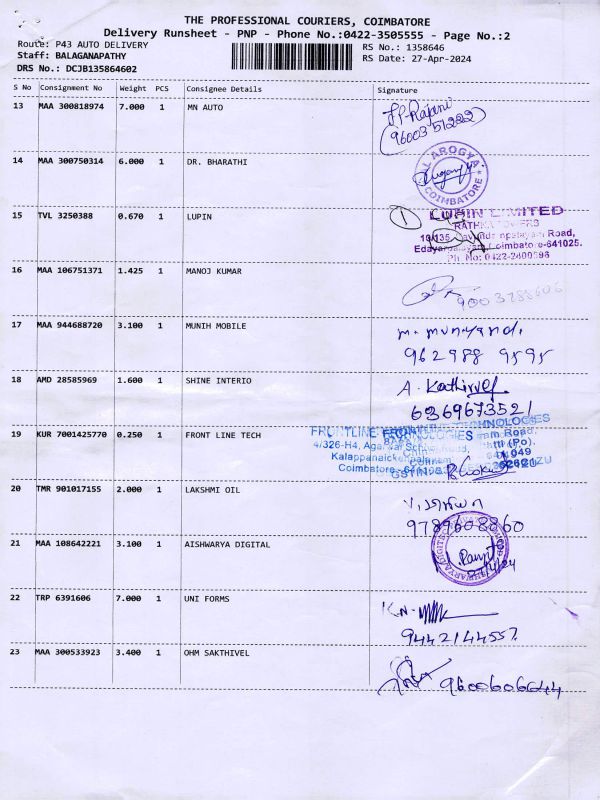 THE PROFESSIONAL COURIERS, COIMBATORE
Delivery Runsheet - PNP - Phone No.:0422-3505555 - Page No.:2
Route: P43 AUTO DELIVERY
RS No.: 1358646
Staff: BALAGANAPATHY
RS Date: 27-Apr-2024
DRS No.: DCJB135864602
S No Consignment No Weight PCS Consignee Details Signature
13 MAA 300818974 7.000 1 MN AUTO
9600351222
14 MAA 300750314 6.000 1 DR. BHARATHI
AROGYA
COIMBATORE
15 TVL 3250388 0.670 1 LUPIN
1 LUPIN LIMITED
Road,
Coimbatore-641025.
Ph. No: 0422-2400596
16 MAA 106751371 1.425 1 MANOJ KUMAR
9003788606
17 MAA 944688720 3.100 1 MUNIH MOBILE
m. muniyandi
962988 9595
18 AMD 28585969 1.600 1 SHINE INTERIO
A. Kathirvel
6369673521
19 KUR 7001425770 0.250 1 FRONT LINE TECH
FRONTLINE TECHNOLOGIES
4/326-H4,
Coimbatore
20 TMR 901017155 2.000 1 LAKSHMI OIL
9789608860
21 MAA 108642221 3.100 1 AISHWARYA DIGITAL
22 TRP 6391606 7.000 1 UNI FORMS
K.N-
9442144557
23 MAA 300533923 3.400 1 OHM SAKTHIVEL
9600606644